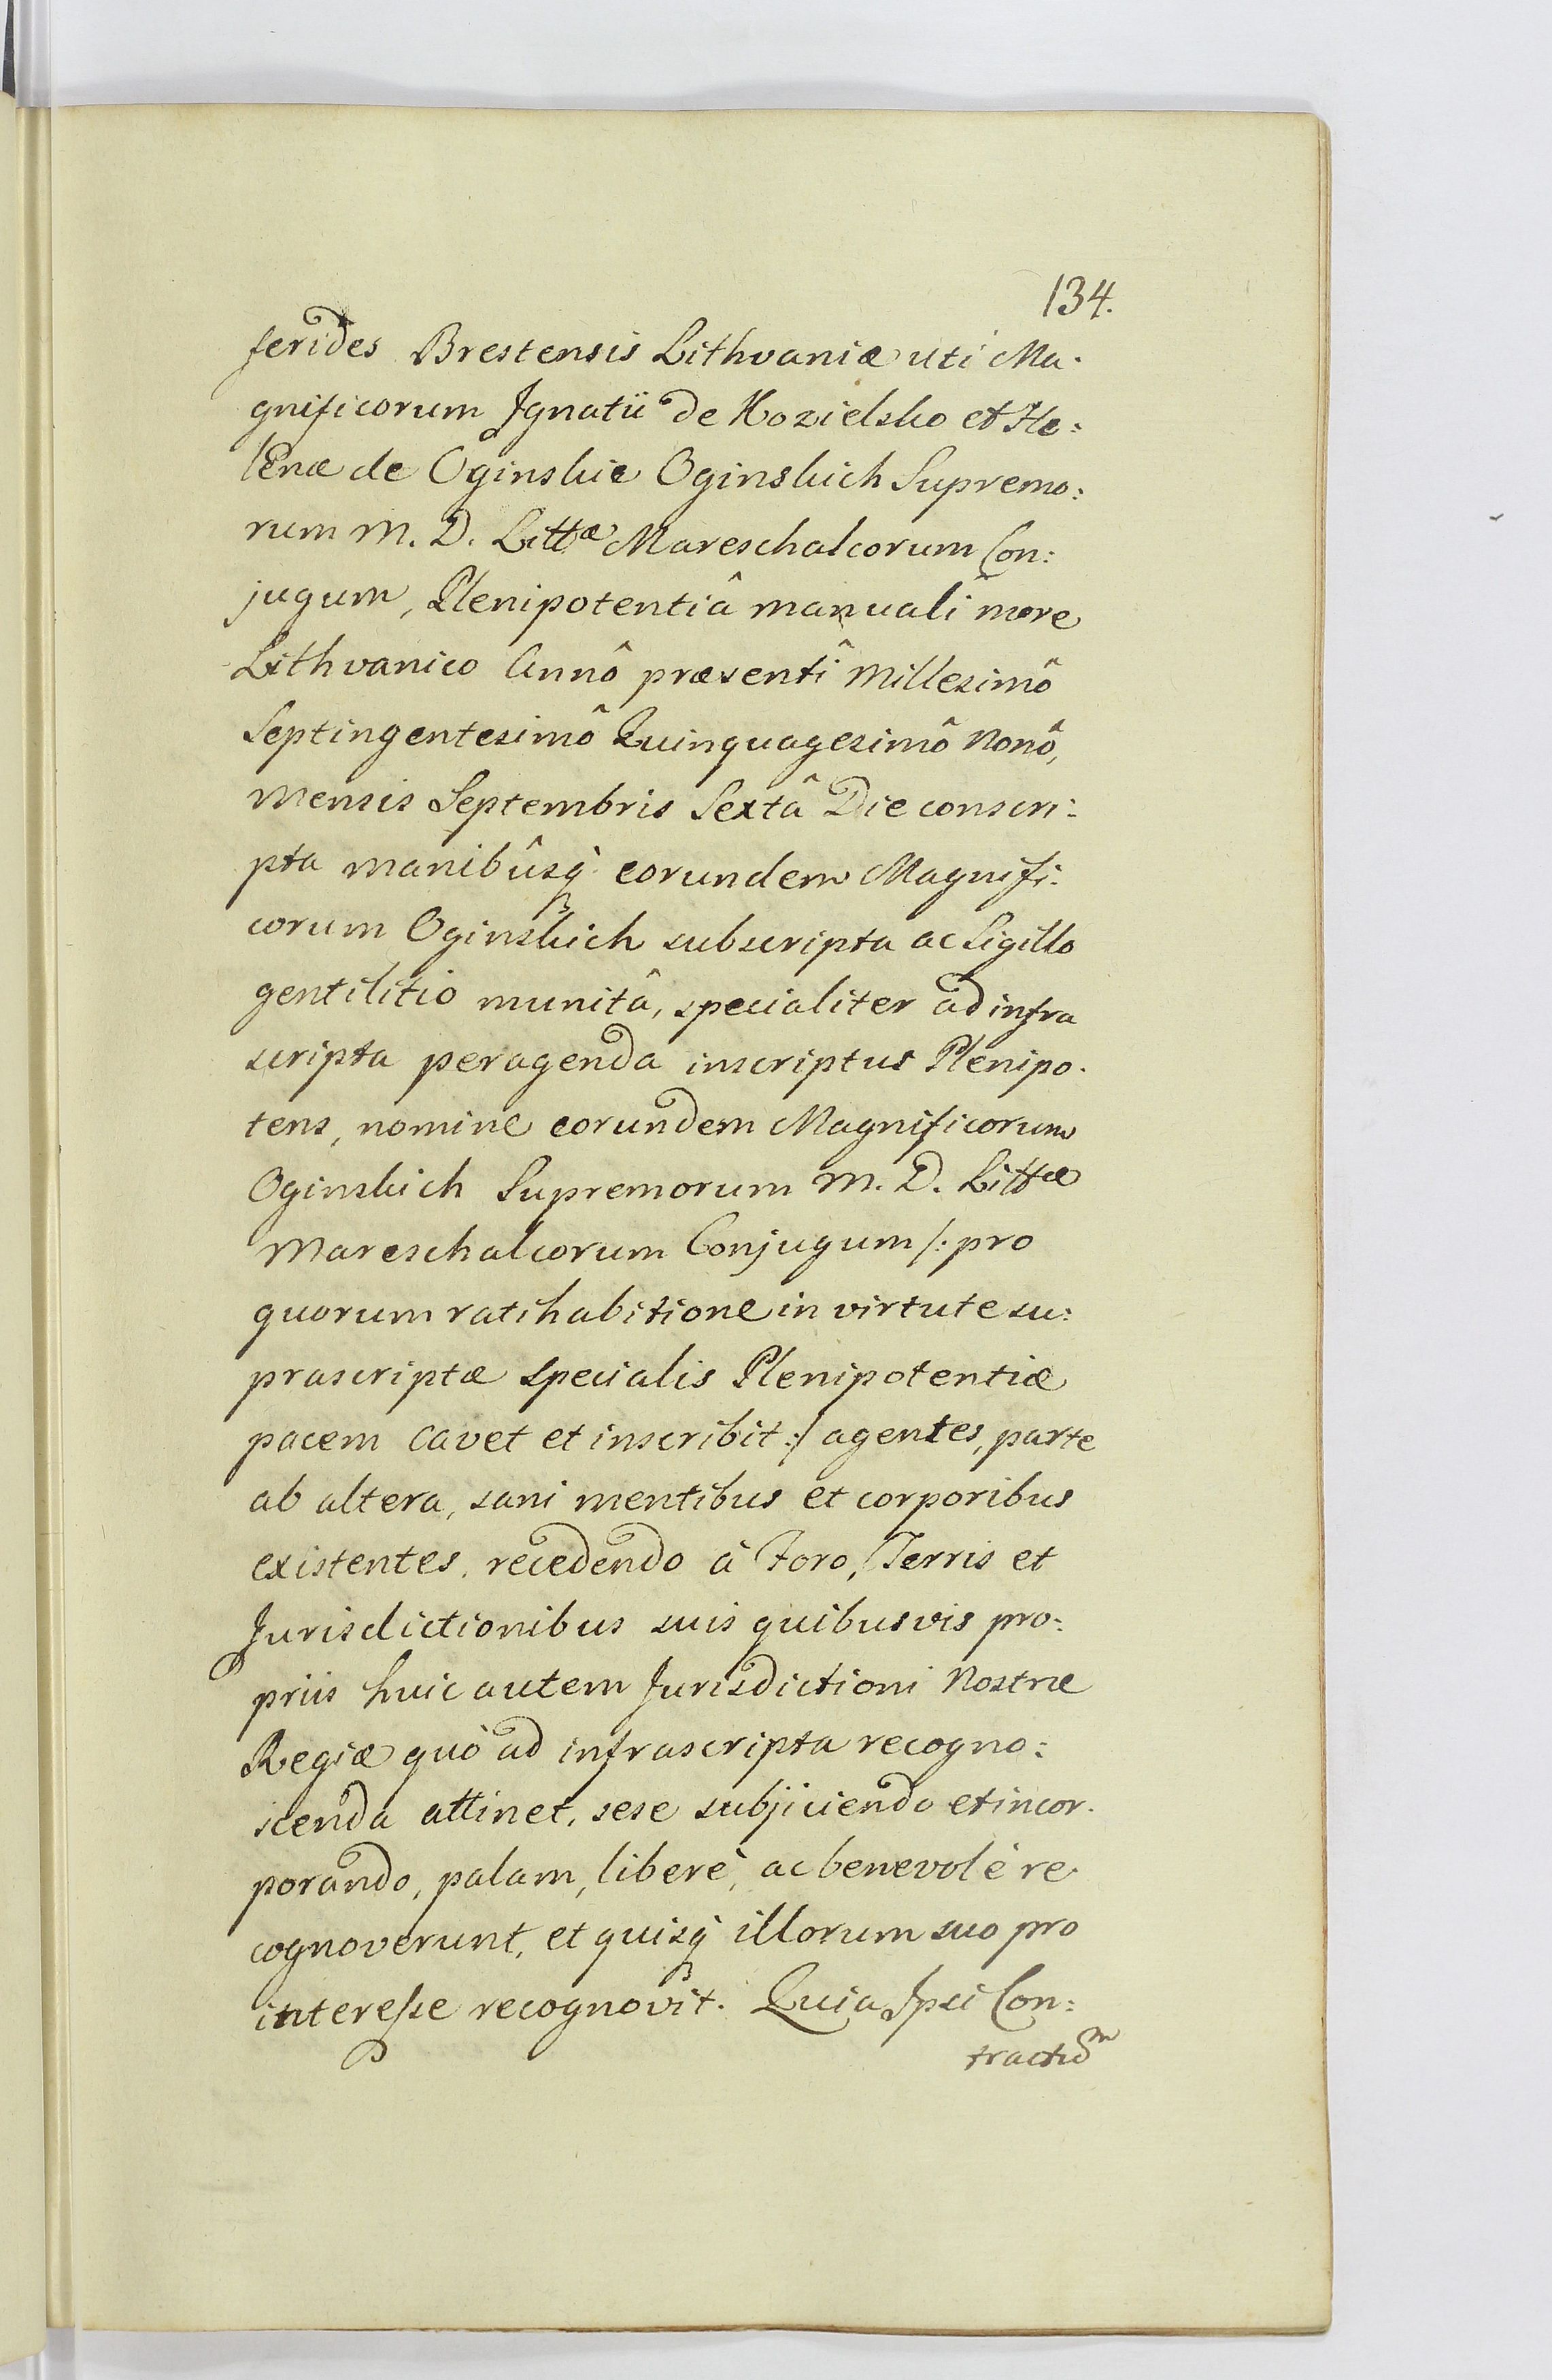 134.
ferides Brestensis Lithvaniæ uti Ma.
gnificorum Ignatii de Kozielsko et He:
lenæ de Oginskie Oginskich Supremo:
rum M. D. Littæ Mareschalcorum Con:
jugum, Plenipotentiâ manuali more
Lithvanico Annô præsentî Millesimô
Septingentesimô Quinquagesimô Nonô,
Mensis Septembris Sextâ Die conscri:
pta manibûsq́ eorundem Magnifi:
corum Oginskich subscripta ac Sigillo
gentilitio munitâ, specialiter ad infra
scripta peragenda inscriptus Plenipo.
tens, nomine eorundem Magnificorum
Oginskich Supremorum M. D. Littæ
Mareschalcorum Conjugum /: pro
quorum ratihabitione in virtute su:
prascriptæ specialis Plenipotentiæ
pacem cavet et inscribit :/ agentes, parte
ab altera, sani mentibus et corporibus
existentes, recedendo à Foro, Terris et
Jurisdictionibus suis quibusvis pro:
priis huic autem Jurisdictioni Nostræ
Regiæ quò ad infrascripta recogno:
scenda attinet, sese subjiciendo et incor.
porando, palam, liberè, ac benevolè re
cognoverunt, et quisq́ illorum suo pro
interesse recognovit. Quia Ipsi Con:
tractum